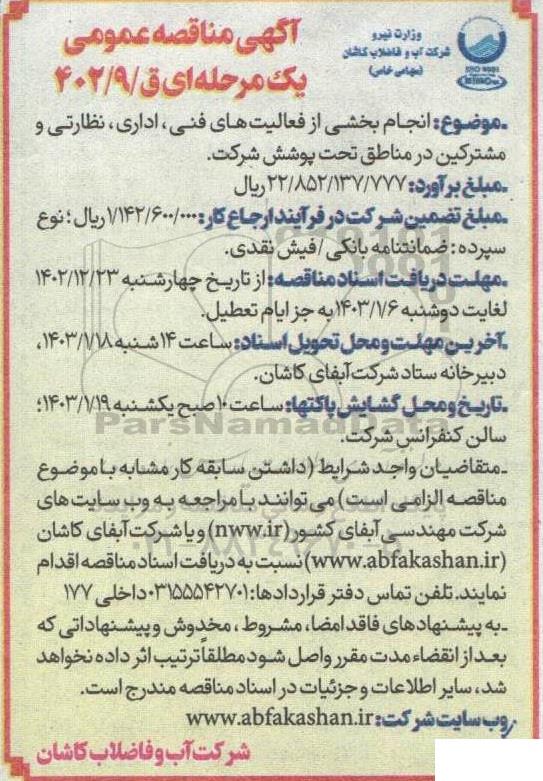 وزارت نیرو
شرکت آب و فاضلاب کاشان
(سهامی خاص)
آگهی مناقصه عمومی
یک مرحله‌ای ق/۴۰۲/۹
-موضوع: انجام بخشی از فعالیت‌های فنی، اداری، نظارتی و
مشترکین در مناطق تحت پوشش شرکت.
-مبلغ برآورد: ۲۲/۸۵۲/۱۳۷/۷۷۷ ریال
-مبلغ تضمین شرکت در فرآیند ارجاع کار: ۱/۱۴۲/۶۰۰/۰۰۰ ریال؛ نوع
سپرده: ضمانتنامه بانکی/فیش نقدی.
-مهلت دریافت اسناد مناقصه: از تاریخ چهارشنبه ۱۴۰۲/۱۲/۲۳
لغایت دوشنبه ۱۴۰۳/۱/۶ به جز ایام تعطیل.
-آخرین مهلت و محل تحویل اسناد: ساعت ۱۴ شنبه ۱۴۰۳/۱/۱۸،
دبیرخانه ستاد شرکت آبفای کاشان.
-تاریخ و محل گشایش پاکتها: ساعت ۱۰ صبح یکشنبه ۱۴۰۳/۱/۱۹؛
سالن کنفرانس شرکت.
-متقاضیان واجد شرایط (داشتن سابقه کار مشابه با موضوع
مناقصه الزامی است) می توانند با مراجعه به وب سایت های
شرکت مهندسی آبفای کشور (nww.ir) و یا شرکت آبفای کاشان
(www.abfakashan.ir) نسبت به دریافت اسناد مناقصه اقدام
نمایند. تلفن تماس دفتر قراردادها: ۰۳۱۵۵۵۴۲۷۰۱ داخلی ۱۷۷
-به پیشنهادهای فاقد امضا، مشروط، مخدوش و پیشنهاداتی که
بعد از انقضاء مدت مقرر واصل شود مطلقاً ترتیب اثر داده نخواهد
شد، سایر اطلاعات و جزئیات در اسناد مناقصه مندرج است.
وب سایت شرکت: www.abfakashan.ir
شرکت آب و فاضلاب کاشان
ParsNamadData